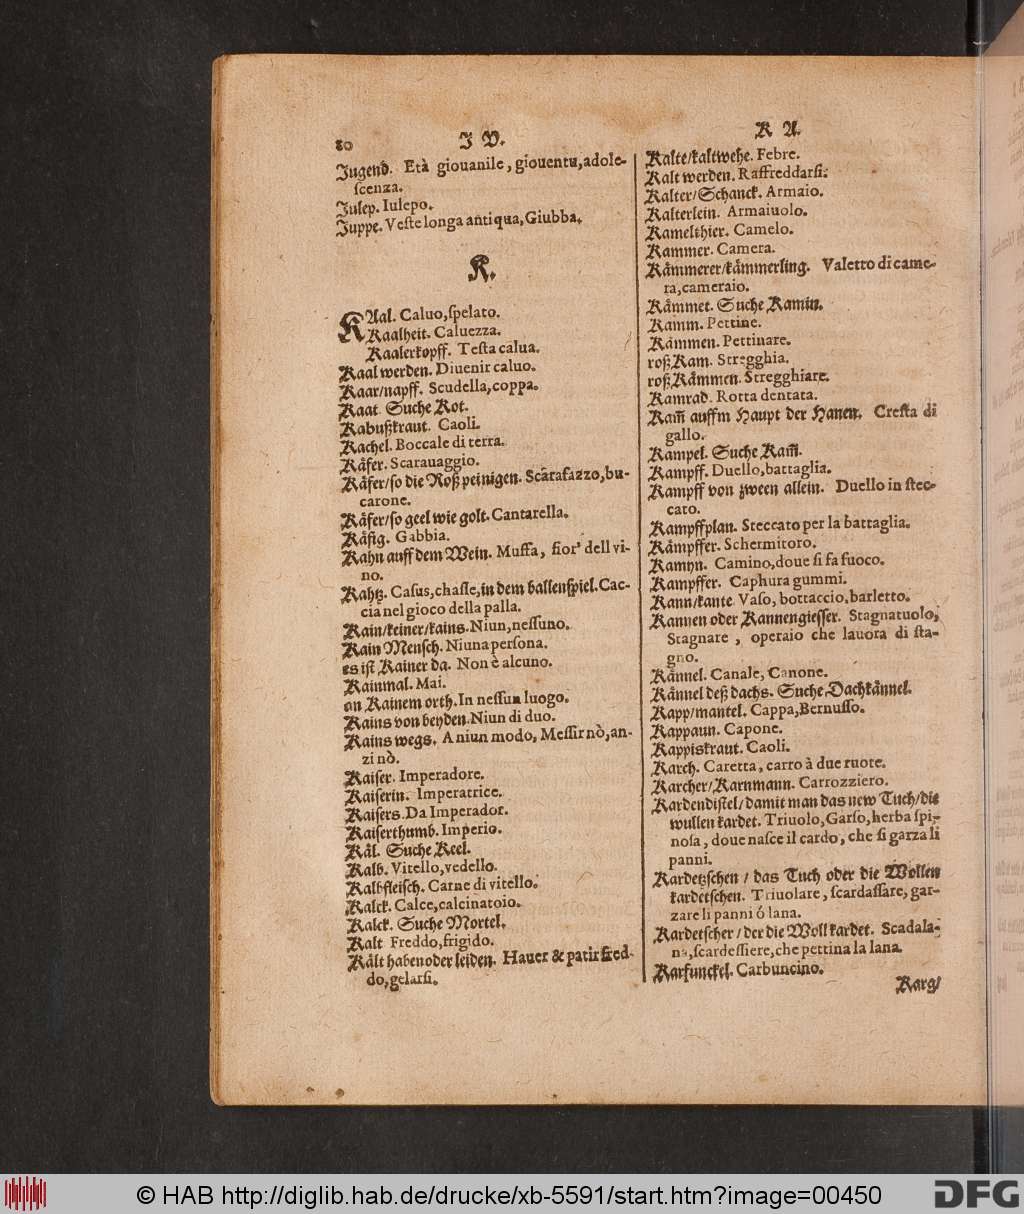 80
J V.
Jugend. Età giouanile, giouentu, adole-
ſcenza.
Julep. Iulepo.
Juppe. Veſte longa antiqua, Giubba.
K.
KAal. Caluo, ſpelato.
Kaalheit. Caluezza.
Kaalerkopff. Teſta calua.
Kaal werden. Diuenir caluo.
Kaar/napff. Scudella, coppa.
Kaat. Suche Kot.
Kabußkraut. Caoli.
Kachel. Boccale di terra.
Kåfer. Scarauaggio.
Kåfer/ſo die Roß peinigen. Scarafazzo, bu-
carone.
Kåfer/ſo geel wie golt. Cantarella.
Kåfig. Gabbia.
Kahn auff dem Wein. Muffa, fior' dell vi-
no.
Kahtz. Caſus, chaſſe, in dem ballenſpiel. Cac-
cia nel gioco della palla.
Kain/keiner/kains. Niun, neſſuno.
Kain Menſch. Niuna perſona.
es iſt Kainer da. Non è alcuno.
Kainmal. Mai.
an Kainem orth. In neſſun luogo.
Kains von beyden. Niun di duo.
Kains wegs. A niun modo, Meſſir nò, an-
zi nò.
Kaiſer. Imperadore.
Kaiſerin. Imperatrice.
Kaiſers. Da Imperador.
Kaiſerthumb. Imperio.
Kål. Suche Keel.
Kalb. Vitello, vedello.
Kalbfleiſch. Carne di vitello.
Kalck. Calce, calcinatoio.
Kalck. Suche Mortel.
Kalt Freddo, frigido.
Kålt haben oder leiden. Hauer & patir fred-
do, gelarſi.
K A.
Kalte/kaltwehe. Febre.
Kalt werden. Raffreddarſi.
Kalter/Schanck. Armaio.
Kalterlein. Armaiuolo.
Kamelthier. Camelo.
Kammer. Camera.
Kåmmerer/kåmmerling. Valetto di came-
ra, cameraio.
Kåmmet. Suche Kamin.
Kamm. Pettine.
Kåmmen. Pettinare.
roß Kam. Stregghia.
roß Kåmmen. Stregghiare.
Kamrad. Rotta dentata.
Kam̃ auffm Haupt der Hanen. Creſta di
gallo.
Kampel. Suche Kam̃.
Kampff. Duello, battaglia.
Kampff von zween allein. Duello in ſtec-
cato.
Kampffplan. Steccato per la battaglia.
Kåmpffer. Schermitoro.
Kamyn. Camino, doue ſi fa fuoco.
Kampffer. Caphura gummi.
Kann/kante. Vaſo, bottaccio, barletto.
Kannen oder Kannengieſſer. Stagnatuolo,
Stagnare, operaio che lauora di ſta-
gno.
Kånnel. Canale, Canone.
Kånnel deß dachs. Suche Dachkånnel.
Kapp/mantel. Cappa, Bernuſſo.
Kappaun. Capone.
Kappiskraut. Caoli.
Karch. Caretta, carro à due ruote.
Karcher/Karnmann. Carrozziero.
Kardendiſtel/damit man das new Tuch/die
wullen kardet. Triuolo, Garſo, herba ſpi-
noſa, doue naſce il cardo, che ſi garza li
panni.
Kardetzſchen / das Tuch oder die Wollen
kardetſchen. Triuolare, ſcardaſſare, gar-
zare li panni ó lana.
Kardetſcher/der die Woll kardet. Scadala-
na, ſcardeſſiere, che pettina la lana.
Karfunckel. Carbuncino.
Karg/
© HAB http://diglib.hab.de/drucke/xb-5591/start.htm?image=00450
DFG